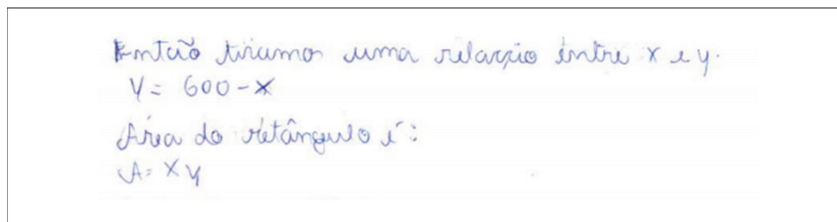 Então tiramos uma relação entre x e y.
Y = 600 - x
Área do retângulo é:
A = x y